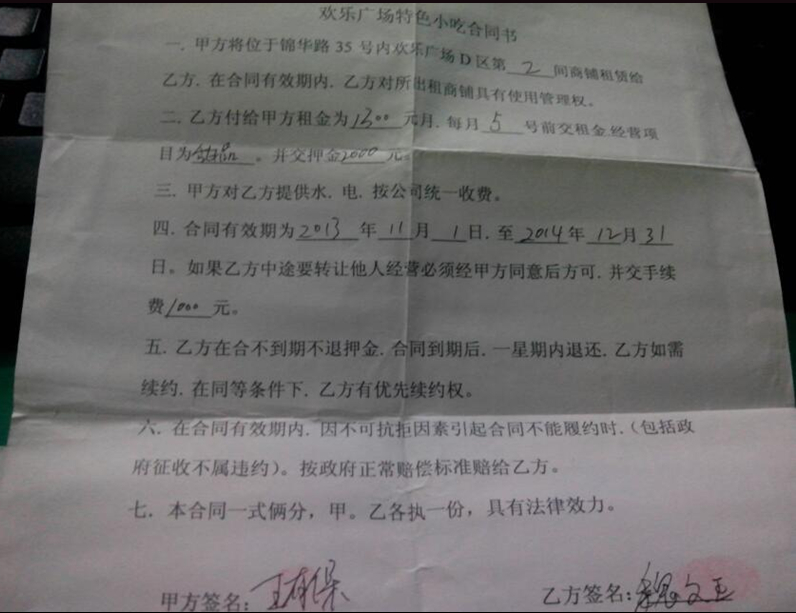 欢乐广场特色小吃合同书
一. 甲方将位于锦华路 35 号内欢乐广场 D 区第 2 间商铺租赁给
乙方. 在合同有效期内. 乙方对所出租商铺具有使用管理权。
二. 乙方付给甲方租金为 1300 元月. 每月 5 号前交租金.经营项
目为 。并交押金 2000 元。
三. 甲方对乙方提供水. 电. 按公司统一收费。
四. 合同有效期为 2013 年 11 月 1 日. 至 2014 年 12 月 31
日。如果乙方中途要转让他人经营必须经甲方同意后方可. 并交手续
费 1000 元。
五. 乙方在合不到期不退押金. 合同到期后. 一星期内退还. 乙方如需
续约. 在同等条件下. 乙方有优先续约权。
六. 在合同有效期内. 因不可抗拒因素引起合同不能履约时.（包括政
府征收不属违约）。按政府正常赔偿标准赔给乙方。
七. 本合同一式俩分，甲。乙各执一份，具有法律效力。
甲方签名： 王有保 乙方签名： 文玉